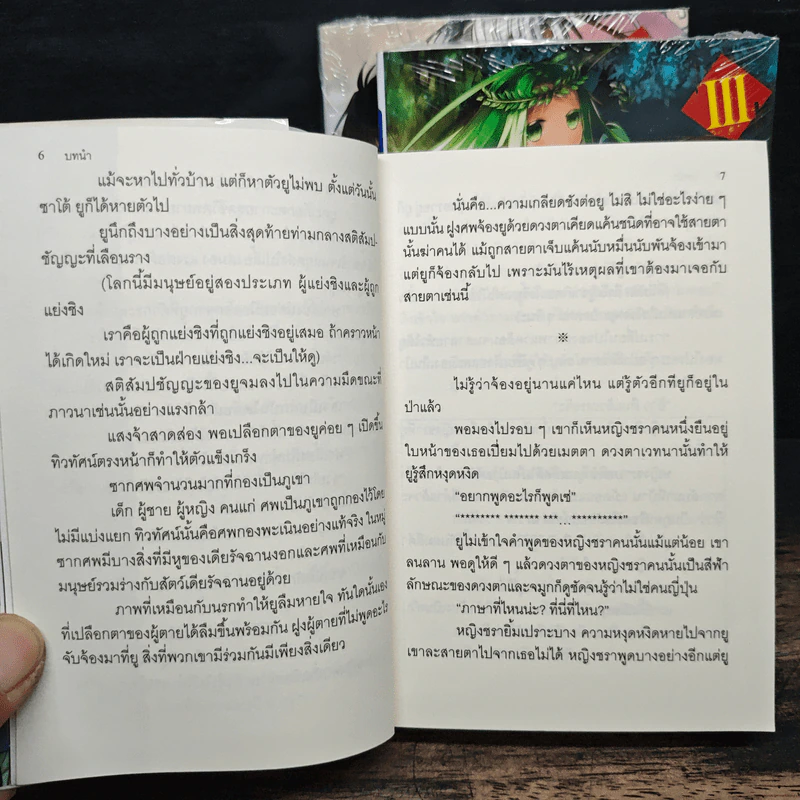 III
6 บทนำ
แม้จะหาไปทั่วบ้าน แต่ก็หาตัวยูไม่พบ ตั้งแต่วันนั้น
ซาโต้ ยูก็ได้หายตัวไป
ยูนึกถึงบางอย่างเป็นสิ่งสุดท้ายท่ามกลางสติสัมป-
ชัญญะที่เลือนราง
(โลกนี้มีมนุษย์อยู่สองประเภท ผู้แย่งชิงและผู้ถูก
แย่งชิง
เราคือผู้ถูกแย่งชิงที่ถูกแย่งชิงอยู่เสมอ ถ้าคราวหน้า
ได้เกิดใหม่ เราจะเป็นฝ่ายแย่งชิง...จะเป็นให้ดู)
สติสัมปชัญญะของยูจมลงไปในความมืดขณะที่
ภาวนาเช่นนั้นอย่างแรงกล้า
แสงจ้าสาดส่อง พอเปลือกตาของยูค่อย ๆ เปิดขึ้น
ทิวทัศน์ตรงหน้าก็ทำให้ตัวแข็งเกร็ง
ซากศพจำนวนมากที่กองเป็นภูเขา
เด็ก ผู้ชาย ผู้หญิง คนแก่ ศพเป็นภูเขาถูกกองไว้โดย
ไม่มีแบ่งแยก ทิวทัศน์นั้นคือศพกองพะเนินอย่างแท้จริง ในหมู่
ซากศพมีบางสิ่งที่มีหูของเดียรัจฉานงอกและศพที่เหมือนกับ
มนุษย์รวมร่างกับสัตว์เดียรัจฉานอยู่ด้วย
ภาพที่เหมือนกับนรกทำให้ยูลืมหายใจ ทันใดนั้นเอง
ที่เปลือกตาของผู้ตายได้ลืมขึ้นพร้อมกัน ฝูงผู้ตายที่ไม่พูดอะไร
จับจ้องมาที่ยู สิ่งที่พวกเขามีร่วมกันมีเพียงสิ่งเดียว
7
นั่นคือ...ความเกลียดชังต่อยู ไม่สิ ไม่ใช่อะไรง่าย ๆ
แบบนั้น ฝูงศพจ้องยูด้วยดวงตาเคียดแค้นชนิดที่อาจใช้สายตา
นั้นฆ่าคนได้ แม้ถูกสายตาเจ็บแค้นนับหมื่นนับพันจ้องเข้ามา
แต่ยูก็จ้องกลับไป เพราะมันไร้เหตุผลที่เขาต้องมาเจอกับ
สายตาเช่นนี้
※
ไม่รู้ว่าจ้องอยู่นานแค่ไหน แต่รู้ตัวอีกทียูก็อยู่ใน
ป่าแล้ว
พอมองไปรอบ ๆ เขาก็เห็นหญิงชราคนหนึ่งยืนอยู่
ใบหน้าของเธอเปี่ยมไปด้วยเมตตา ดวงตาเวทนานั้นทำให้
ยูรู้สึกหงุดหงิด
"อยากพูดอะไรก็พูดเซ่"
"******** ******* ***...**********"
ยูไม่เข้าใจคำพูดของหญิงชราคนนั้นแม้แต่น้อย เขา
ลนลาน พอดูให้ดี ๆ แล้วดวงตาของหญิงชราคนนั้นเป็นสีฟ้า
ลักษณะของดวงตาและจมูกก็ดูชัดจนรู้ว่าไม่ใช่คนญี่ปุ่น
"ภาษาที่ไหนน่ะ? ที่นี่ที่ไหน?"
หญิงชรายิ้มเปราะบาง ความหงุดหงิดหายไปจากยู
เขาละสายตาไปจากเธอไม่ได้ หญิงชราพูดบางอย่างอีกแต่ยู